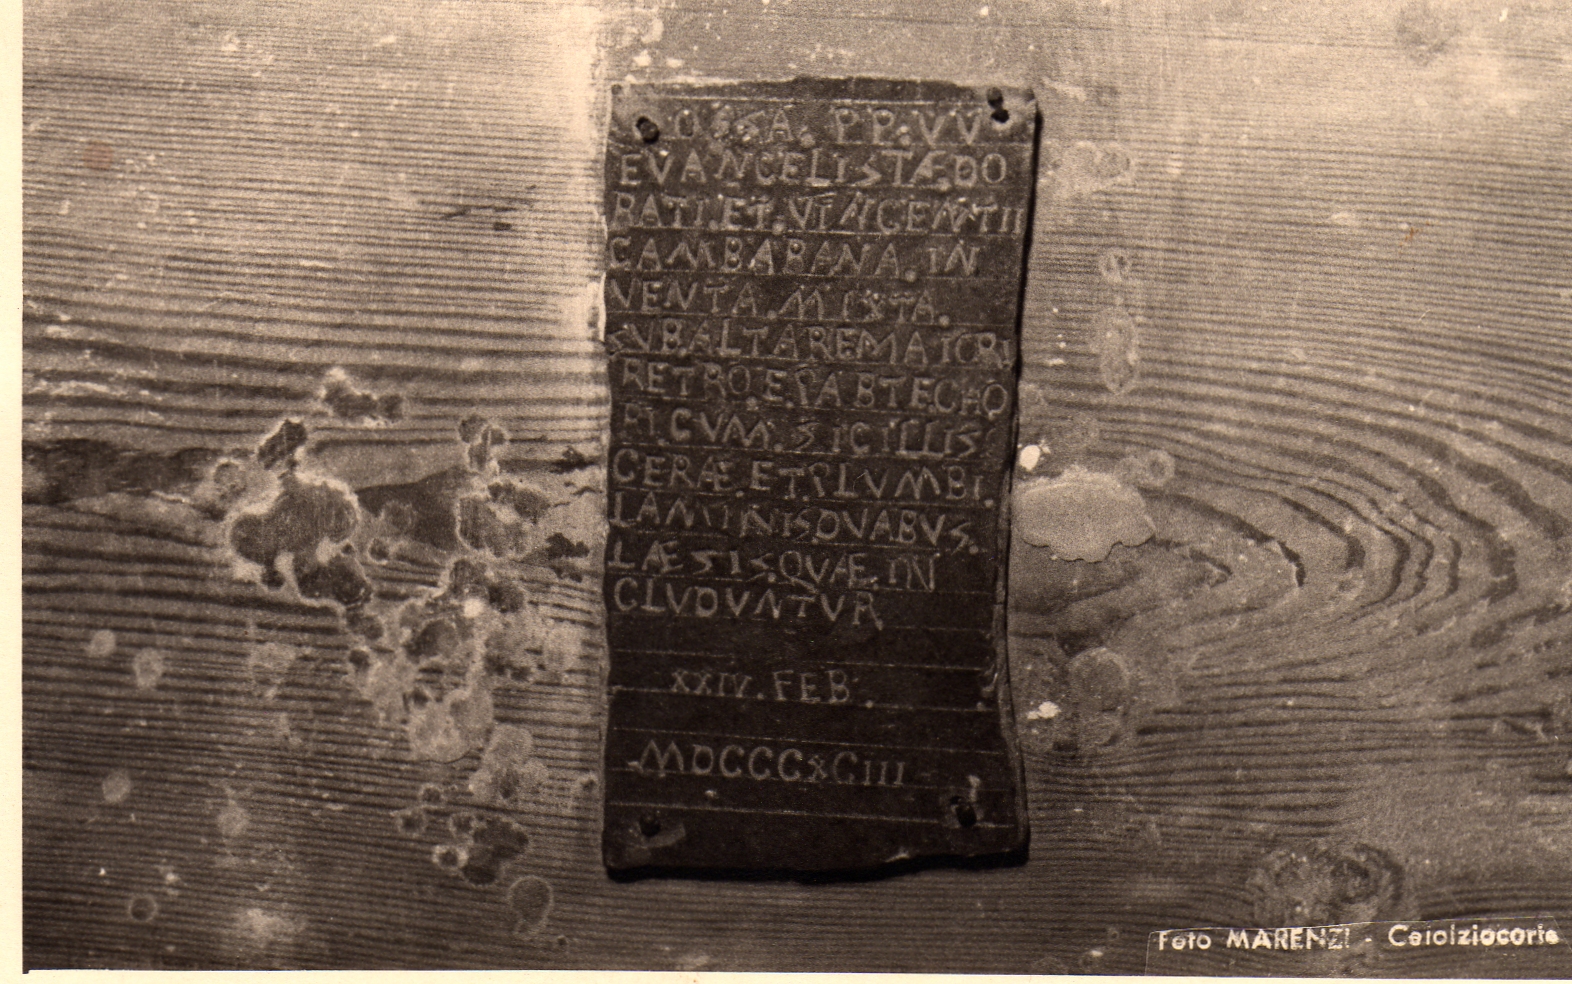 OSSA. PP. VV
EVANGELISTÆ. DO
RATI. ET. VINCENTII
GAMBARANA. IN
VENTA. MIXTA.
SVB. ALTARE MAIORI
RETRO. E. PARTE CHO
RI. CVM. SIGILLIS
CERÆ. ET. PLVMBI.
LAMINIS DVABVS.
LÆSIS. QVÆ. IN
CLVDVNTVR
XXIV. FEB.
MDCCCXCIII
Foto MARENZI - Calolziocorte